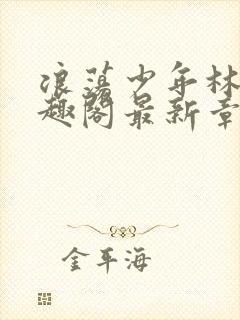 浪荡少年林
趣阁最新章
金平海